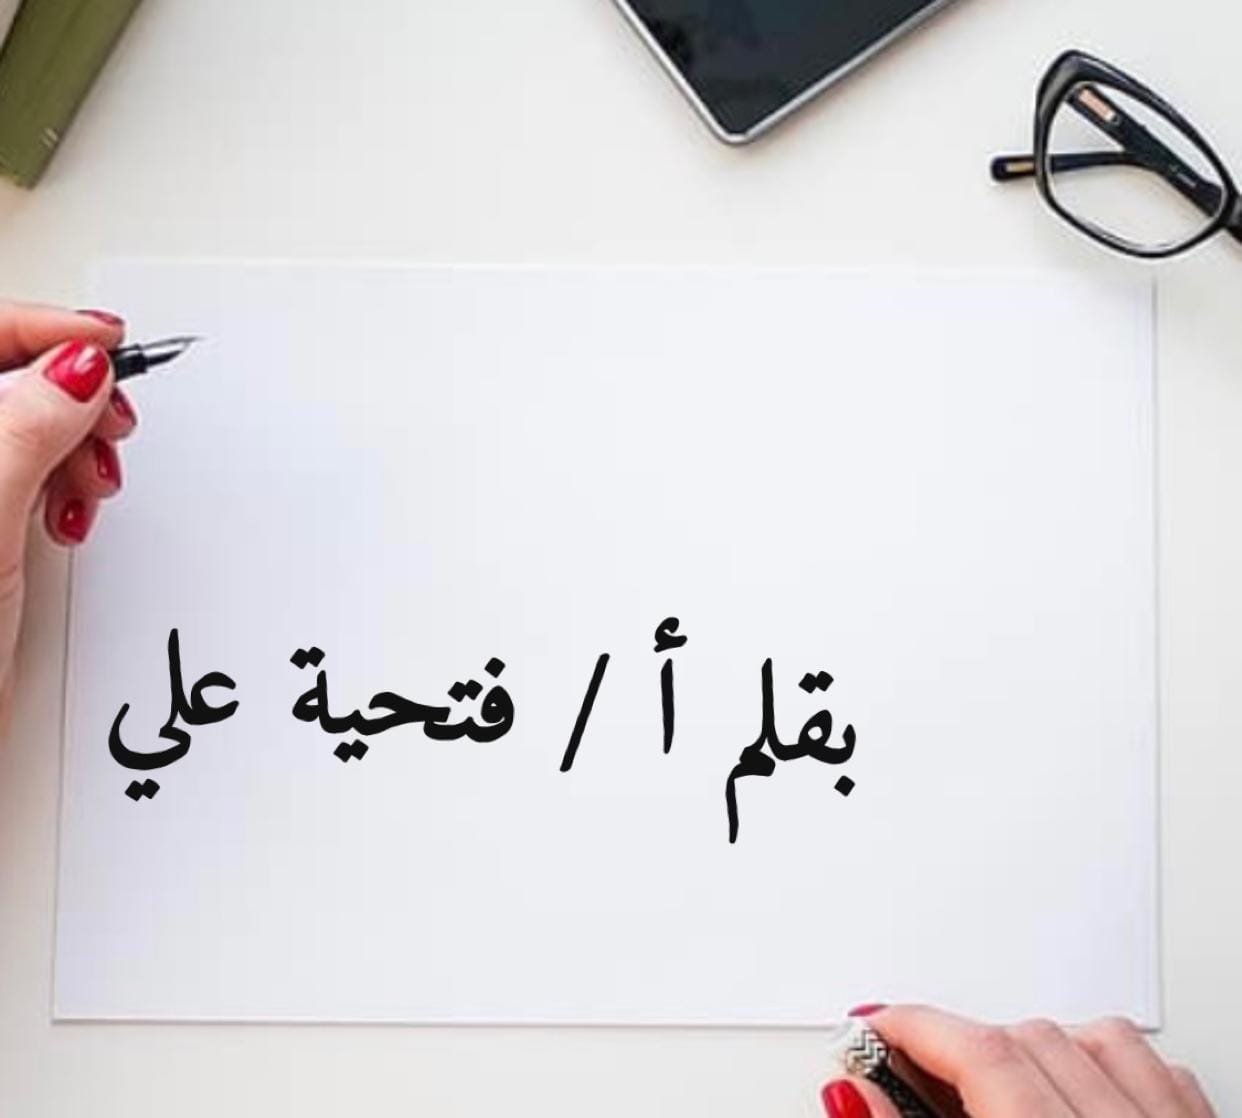 بقلم أ / فتحية علي